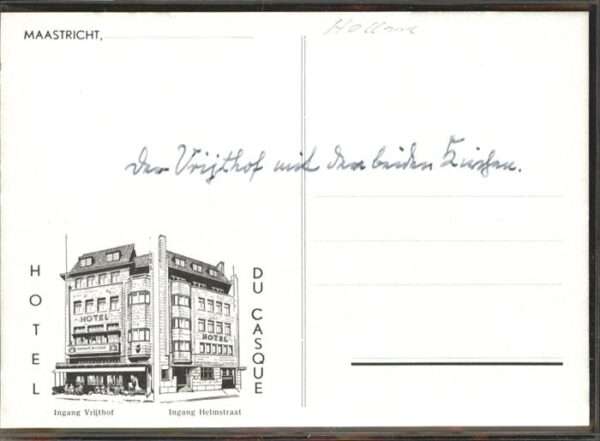 MAASTRICHT,
Holland
Der Vrijthof mit den beiden Kirchen.
HOTEL
DU CASQUE
HOTEL
HOTEL
Ingang Vrijthof
Ingang Helmstraat